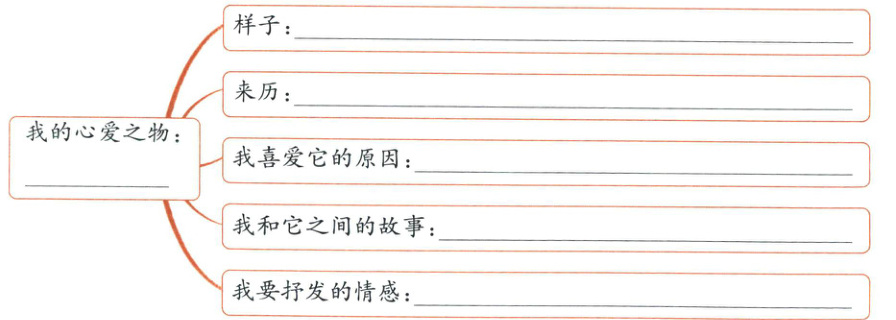 样子：
来历：
我的心爱之物：
我喜爱它的原因：
我和它之间的故事：
我要抒发的情感：